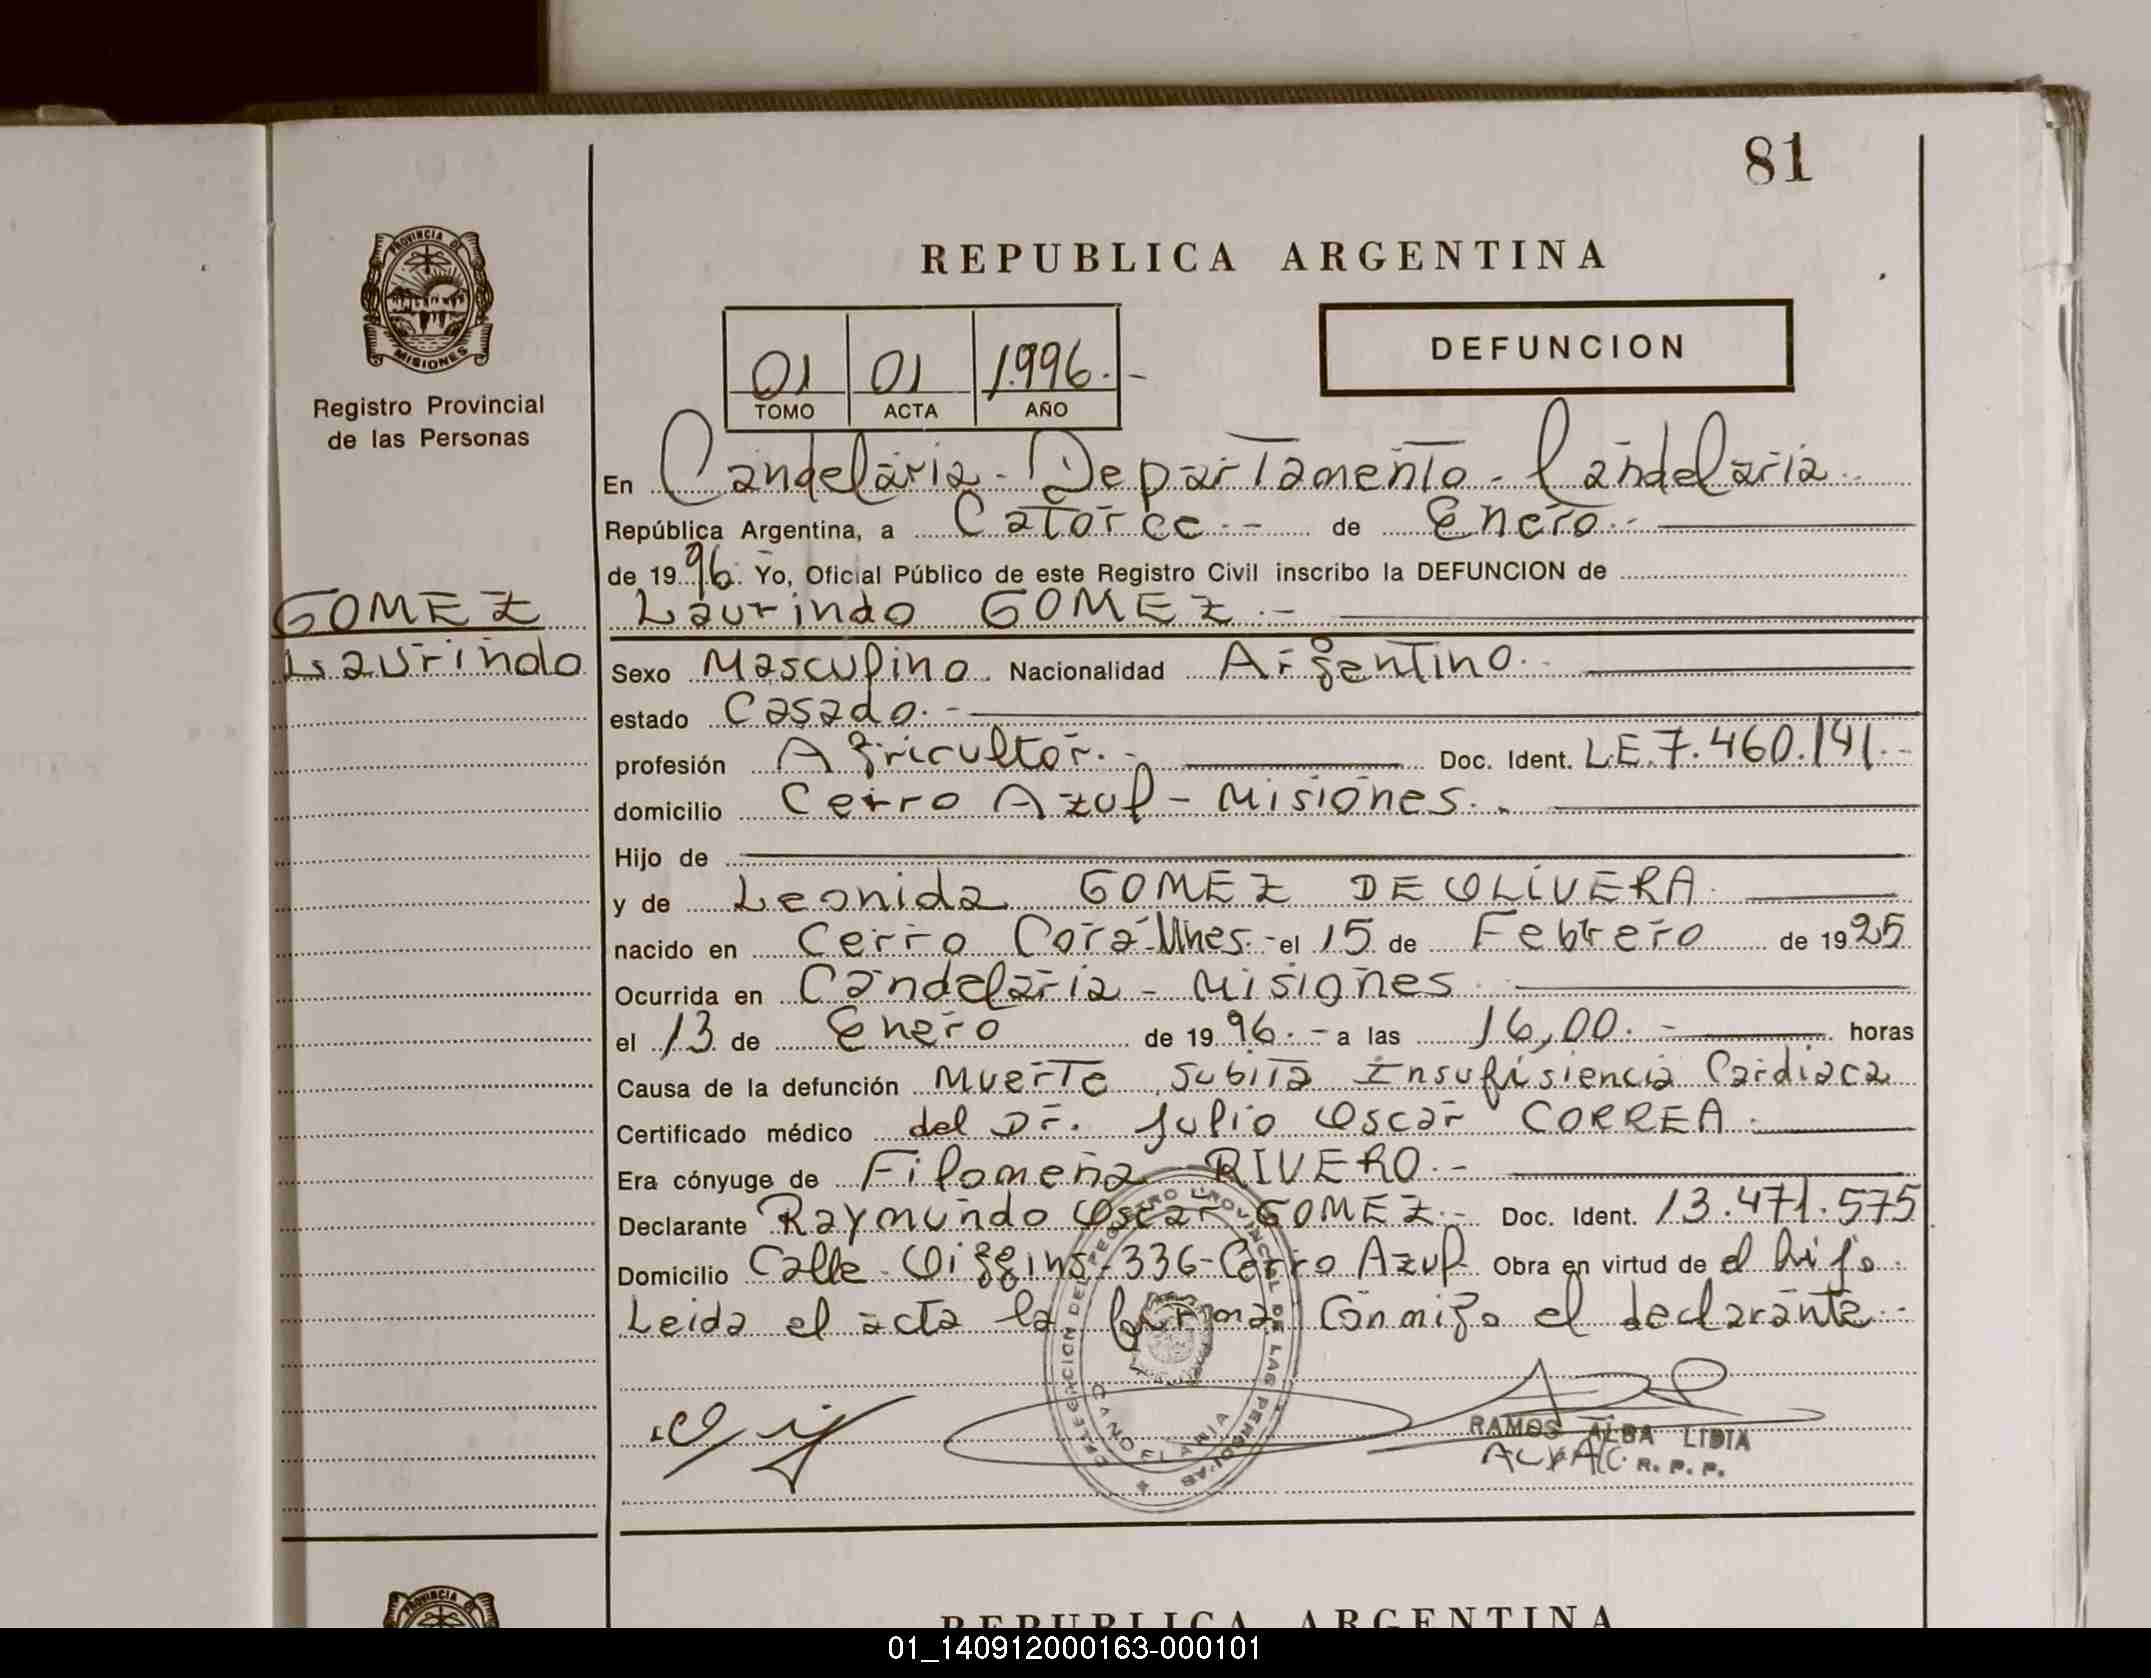 81
PROVINCIA DE
MISIONES
Registro Provincial
de las Personas
REPUBLICA ARGENTINA
01 01 1.996.-
TOMO ACTA AÑO
DEFUNCION
En Candelaria - Departamento - Candelaria
República Argentina, a Catorce.- de Enero.-
de 1996. Yo, Oficial Público de este Registro Civil inscribo la DEFUNCION de
GOMEZ
Laurindo
Laurindo GOMEZ.-
Sexo Masculino. Nacionalidad Argentino.
estado Casado.-
profesión Agricultor.- Doc. Ident. L.E.7.460.141.-
domicilio Cerro Azul - Misiones.-
Hijo de
y de Leonida GOMEZ DE OLIVERA.
nacido en Cerro Corá-Mnes.- el 15 de Febrero de 1925
Ocurrida en Candelaria - Misiones
el 13 de Enero de 1996.- a las 16,00.- horas
Causa de la defunción Muerte Subita Insufisiencia Cardiaca
Certificado médico del Dr. Julio Oscar CORREA.
Era cónyuge de Filomena RIVERO.-
Declarante Raymundo Oscar GOMEZ.- Doc. Ident. 13.471.575
Domicilio Calle Oiggins-336-Cerro Azul Obra en virtud de el hijo.
Leida el acta la firma conmigo el declarante.-
DELEGACION DEL REGISTRO PROVINCIAL DE LAS PERSONAS
CANDELARIA
RAMOS ALBA LIDIA
R. P. P.
PROVINCIA
REPUBLICA ARGENTINA
01_140912000163-000101